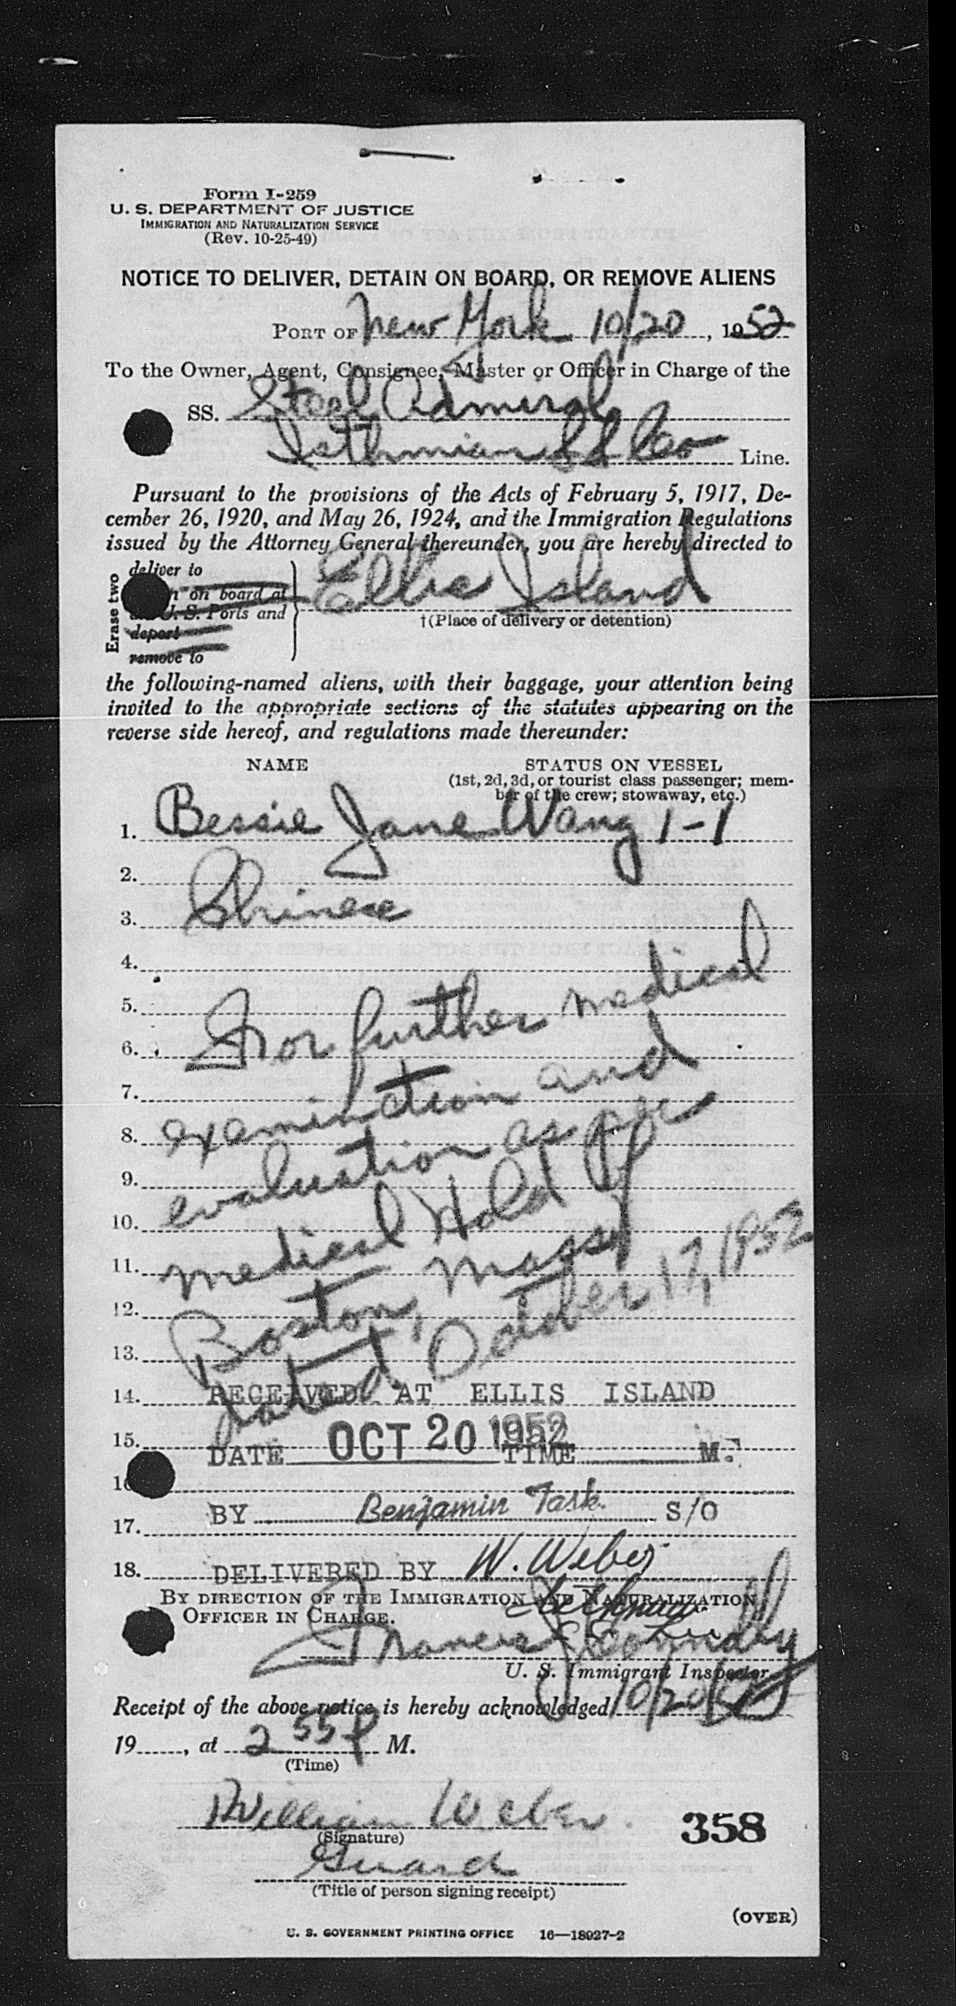 Form I-259
U. S. DEPARTMENT OF JUSTICE
IMMIGRATION AND NATURALIZATION SERVICE
(Rev. 10-25-49)
NOTICE TO DELIVER, DETAIN ON BOARD, OR REMOVE ALIENS
PORT OF New York 10/20, 1952
To the Owner, Agent, Consignee, Master or Officer in Charge of the
SS. Steel Admiral
Isthmian SS Co Line.
Pursuant to the provisions of the Acts of February 5, 1917, De-
cember 26, 1920, and May 26, 1924, and the Immigration Regulations
issued by the Attorney General thereunder, you are hereby directed to
Erase two
deliver to
on board at
U. S. Ports and
deport
remove to
Ellis Island
†(Place of delivery or detention)
the following-named aliens, with their baggage, your attention being
invited to the appropriate sections of the statutes appearing on the
reverse side hereof, and regulations made thereunder:
NAME STATUS ON VESSEL
(1st, 2d, 3d, or tourist class passenger; mem-
ber of the crew; stowaway, etc.)
1. Bessie Jane Wang 1-1
2.
3. Chinese
4.
5.
6. For further medical
7.
8. examination and
9. evaluation as per
10.
11. medical Hold of
12. Boston, Mass
13.
dated October 17, 1952
14. RECEIVED AT ELLIS ISLAND
15. DATE OCT 20 1952 TIME M.
16
17. BY Benjamin Task S/O
18. DELIVERED BY W. Weber
BY DIRECTION OF THE IMMIGRATION AND NATURALIZATION
OFFICER IN CHARGE.
Francis J Connolly
U. S. Immigrant Inspector
Receipt of the above notice is hereby acknowledged 10/20/52
19......, at 2 55 P M.
(Time)
William Weber
(Signature)
358
Guard
(Title of person signing receipt)
(OVER)
U. S. GOVERNMENT PRINTING OFFICE 16—18027-2